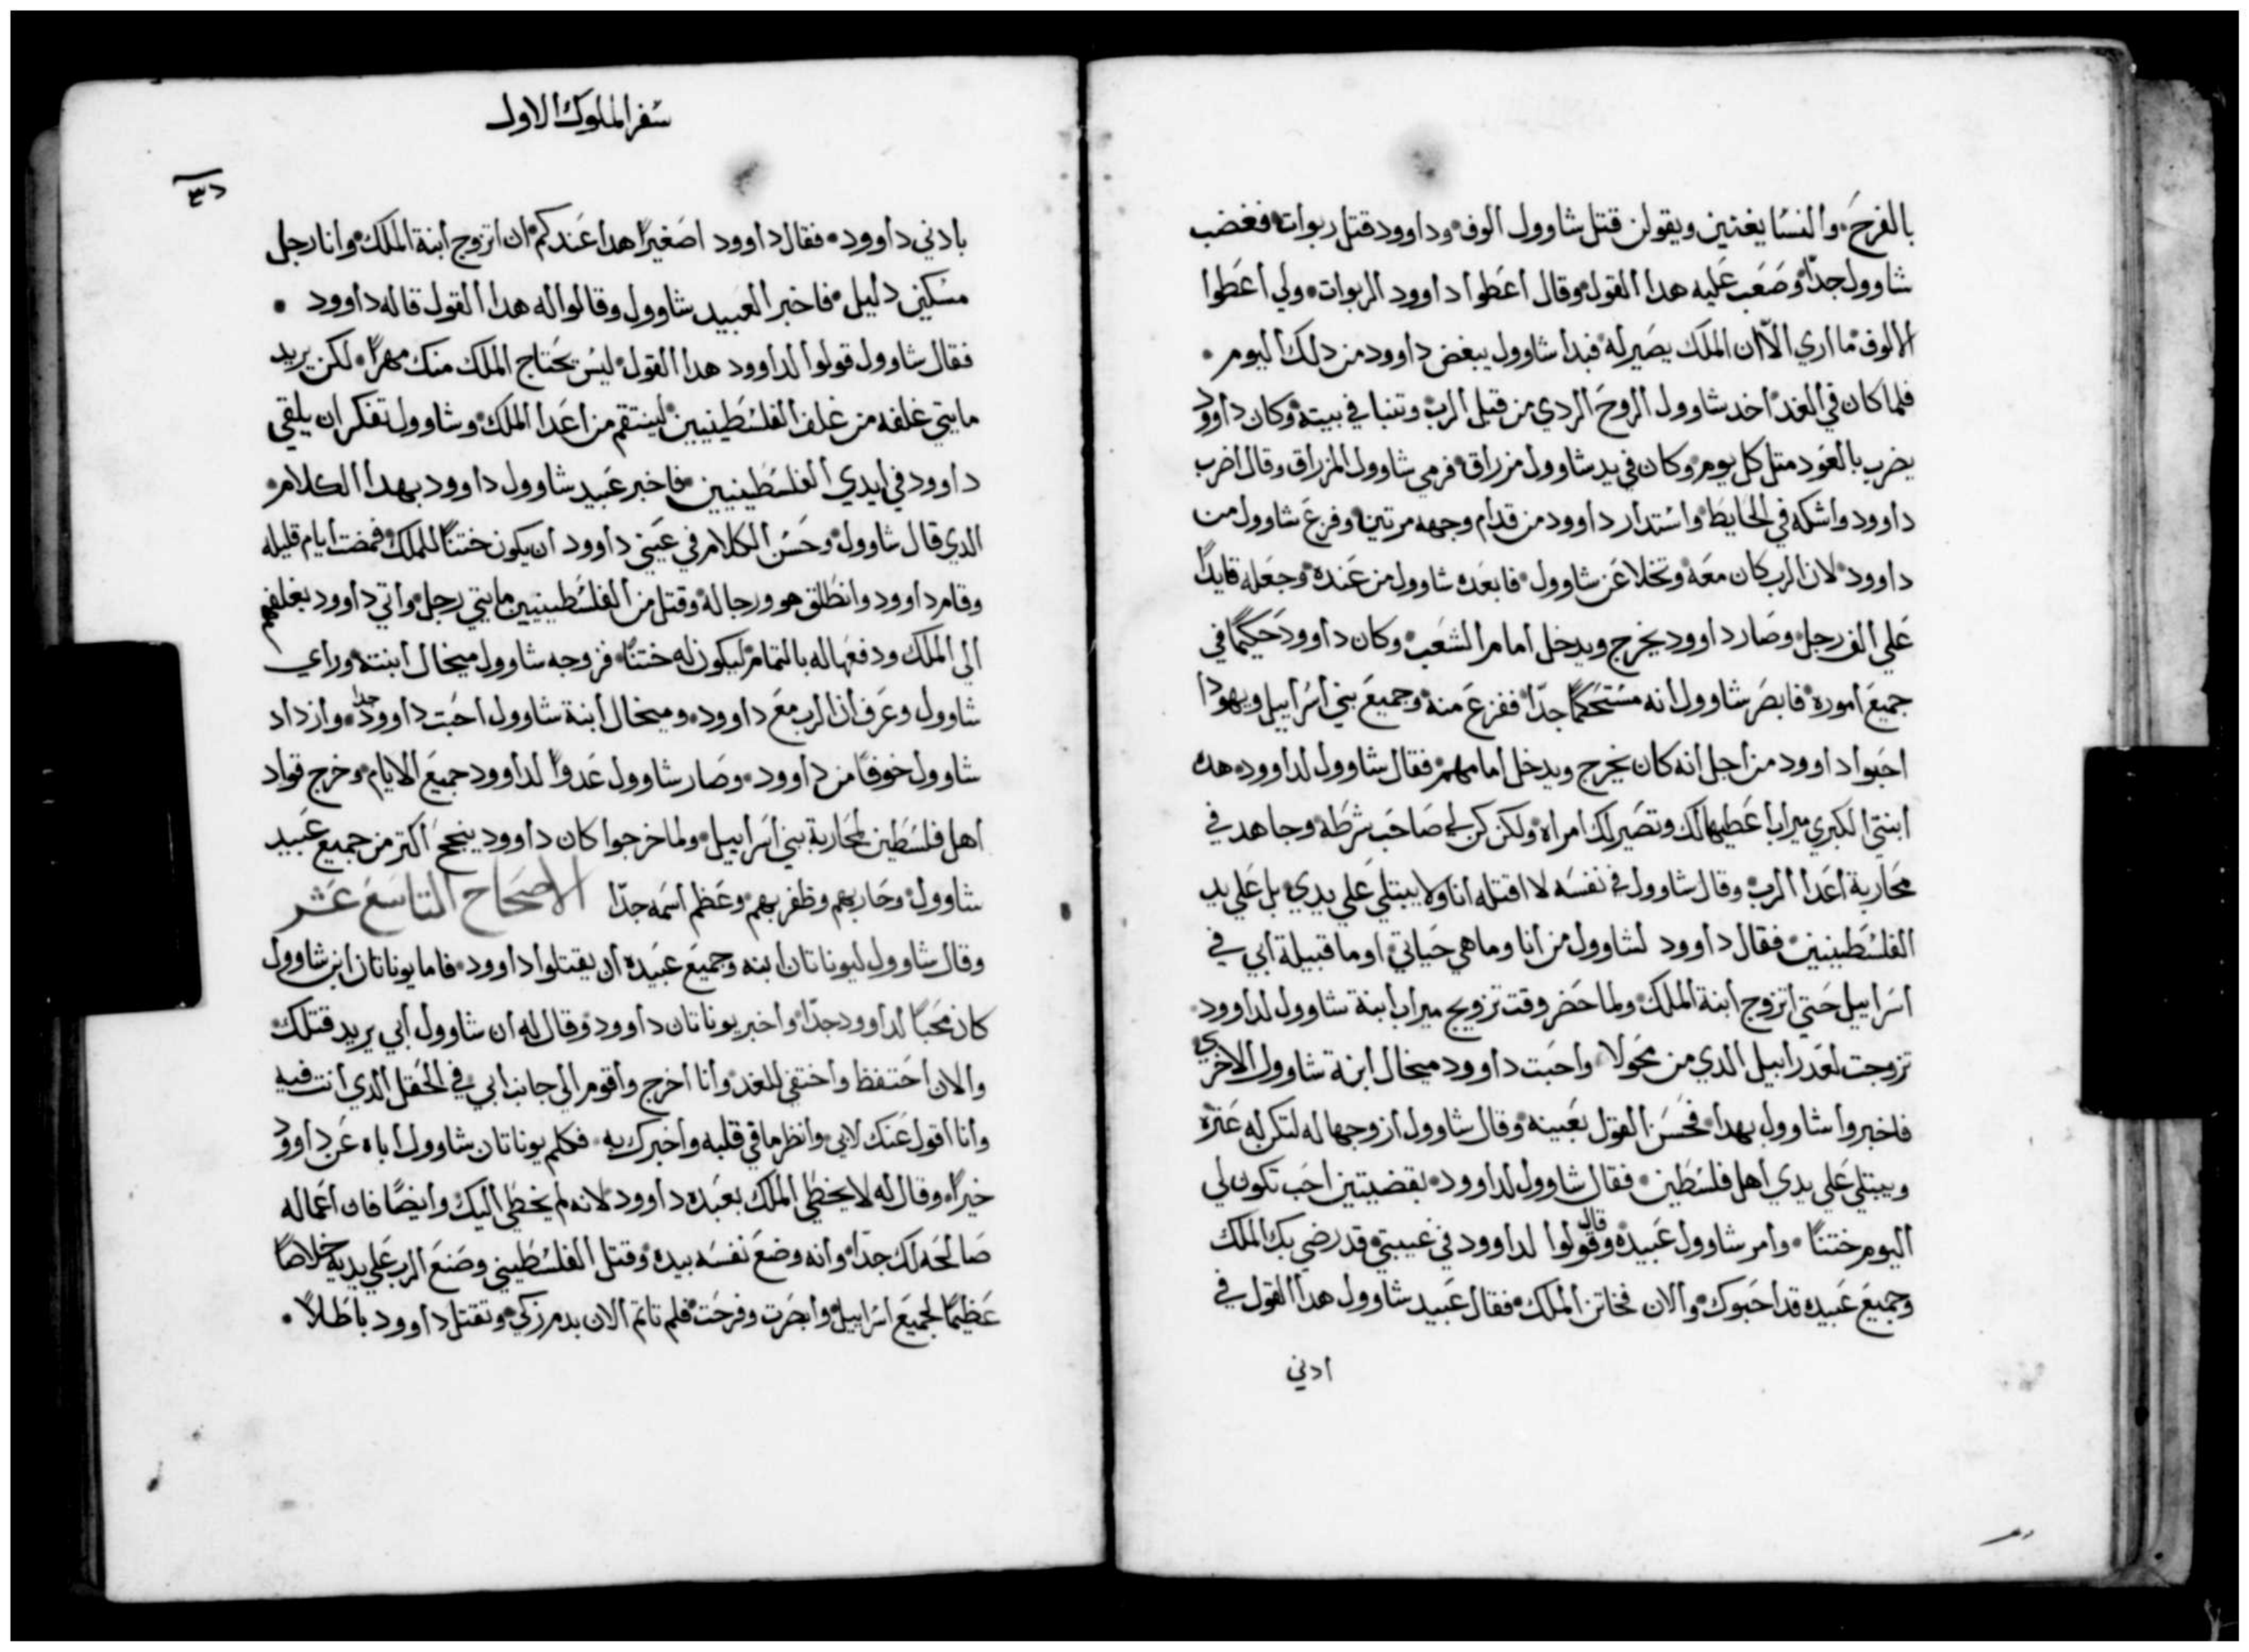 بالفرح والنسا يغنين ويقولن قتل شاوول الوف وداوود قتل ربوات فغضب
شاوول جدًا وصعب عليه هدا القول وقال اعطوا داوود الربوات ولي اعطوا
الالوف ما اري الا ان الملك يصير له فبدا شاوول يبغض داوود من دلك اليوم
فلما كان في الغد اخد شاوول الروح الردي من قبل الرب وتنبا في بيته وكان داوود
يضرب بالعود متل كل يوم وكان في يد شاوول مزراق فرمي شاوول المزراق وقال اضرب
داوود واشكه في الحايط واستدار داوود من قدام وجهه مرتين وفزع شاوول من
داوود لان الرب كان معه وتخلا عن شاوول فابعده شاوول من عنده وجعله قايدًا
علي الف رجل وصار داوود يخرج ويدخل امام الشعب وكان داوود حكيمًا في
جميع اموره فابصر شاوول انه مستحكمًا جدًا ففزع منه وجميع بني اسراييل ويهودا
احبوا داوود من اجل انه كان يخرج ويدخل امامهم فقال شاوول لداوود هده
ابنتي الكبري ميراب اعطيها لك وتصير لك امراه ولكن كن لي صاحب شرطه وجاهد في
محاربة اعدا الرب وقال شاوول في نفسه لا اقتله انا ولا يبتلي علي يدي بل علي يد
الفلسطينيين فقال داوود لشاوول من انا وما هي حياتي او ما قبيلة ابي في
اسراييل حتي اتزوج ابنة الملك ولما حضر وقت تزويج ميراب ابنة شاوول لداوود
تزوجت لعدراييل الدي من محولا واحبت داوود ميخال ابنة شاوول الاخري
فاخبروا شاوول بهدا فحسن القول بعينه وقال شاوول ازوجها له لتكن له عترة
ويبتلي علي يدي اهل فلسطين فقال شاوول لداوود بقضيتين احب تكون لي
اليوم ختنًا وامر شاوول عبيده وقال قولوا لداوود في غيبتي قد رضي بك الملك
وجميع عبيده قد احبوك والان فخاتن الملك فقال عبيد شاوول هدا القول في
ادني
سفر الملوك الاول
بادني داوود فقال داوود اصغيرًا هدا عندكم ان اتزوج ابنة الملك وانا رجل
مسكين دليل فاخبر العبيد شاوول وقالوا له هدا القول قاله داوود
فقال شاوول قولوا لداوود هدا القول ليس يحتاج الملك منك مهرًا لكن يريد
مايتي غلفه من غلف الفلسطينيين لينتقم من اعدا الملك وشاوول تفكر ان يلقي
داوود في ايدي الفلسطينيين فاخبر عبيد شاوول داوود بهدا الكلام
الدي قال شاوول وحسن الكلام في عيني داوود ان يكون ختنًا للملك فمضت ايام قليله
وقام داوود وانطلق هو ورجاله وقتل من الفلسطينيين مايتي رجل واتي داوود بغلفهم
الي الملك ودفعها له بالتمام ليكون له ختنًا فزوجه شاوول ميخال ابنته وراي
شاوول وعرف ان الرب مع داوود وميخال ابنة شاوول احبت داوود جدًا وازداد
شاوول خوفًا من داوود وصار شاوول عدوًا لداوود جميع الايام وخرج قواد
اهل فلسطين لمحاربة بني اسراييل ولما خرجوا كان داوود ينجح اكتر من جميع عبيد
شاوول وحاربهم وظفر بهم وعظم اسمه جدًا الاصحاح التاسع عشر
وقال شاوول ليوناتان ابنه وجميع عبيده ان يقتلوا داوود فاما يوناتان ابن شاوول
كان محبًا لداوود جدًا واخبر يوناتان داوود وقال له ان شاوول ابي يريد قتلك
والان احتفظ واختفي للغد وانا اخرج واقوم الي جانب ابي في الحقل الدي انت فيه
وانا اقول عنك لابي وانظر ما في قلبه واخبرك به فكلم يوناتان شاوول اباه عن داوود
خيرًا وقال له لا يخطي الملك بعبده داوود لانه لم يخطي اليك وايضًا فان اعماله
صالحه لك جدًا وانه وضع نفسه بيده وقتل الفلسطيني وصنع الرب علي يديه خلاصًا
عظيمًا لجميع اسراييل وابصرت وفرحت فلم تاتم الان بدم زكي وتقتل داوود باطلاً